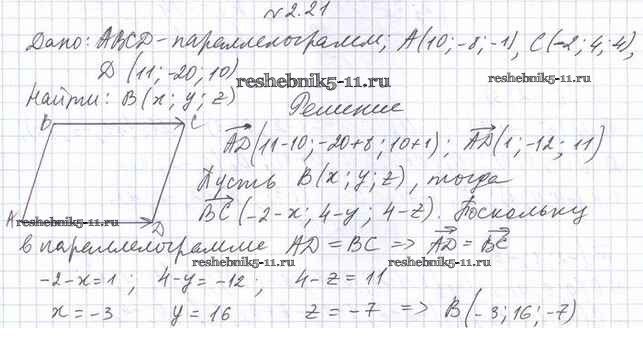 №2.21
Дано: ABCD - параллелограмм; A(10; -8; -1), C(-2; 4; 4),
D(11; -20; 10)
reshebnik5-11.ru
reshebnik5-11.ru
Найти: B(x; y; z)
Решение
B C
AD(11-10; -20+8; 10+1); AD(1; -12; 11)
Пусть B(x; y; z), тогда
A D
reshebnik5-11.ru
BC(-2-x; 4-y; 4-z). Поскольку
в параллелограмме AD = BC => AD = BC
reshebnik5-11.ru
reshebnik5-11.ru
-2-x=1; 4-y=-12; 4-z=11
x=-3 y=16 z=-7 => B(-3; 16; -7)